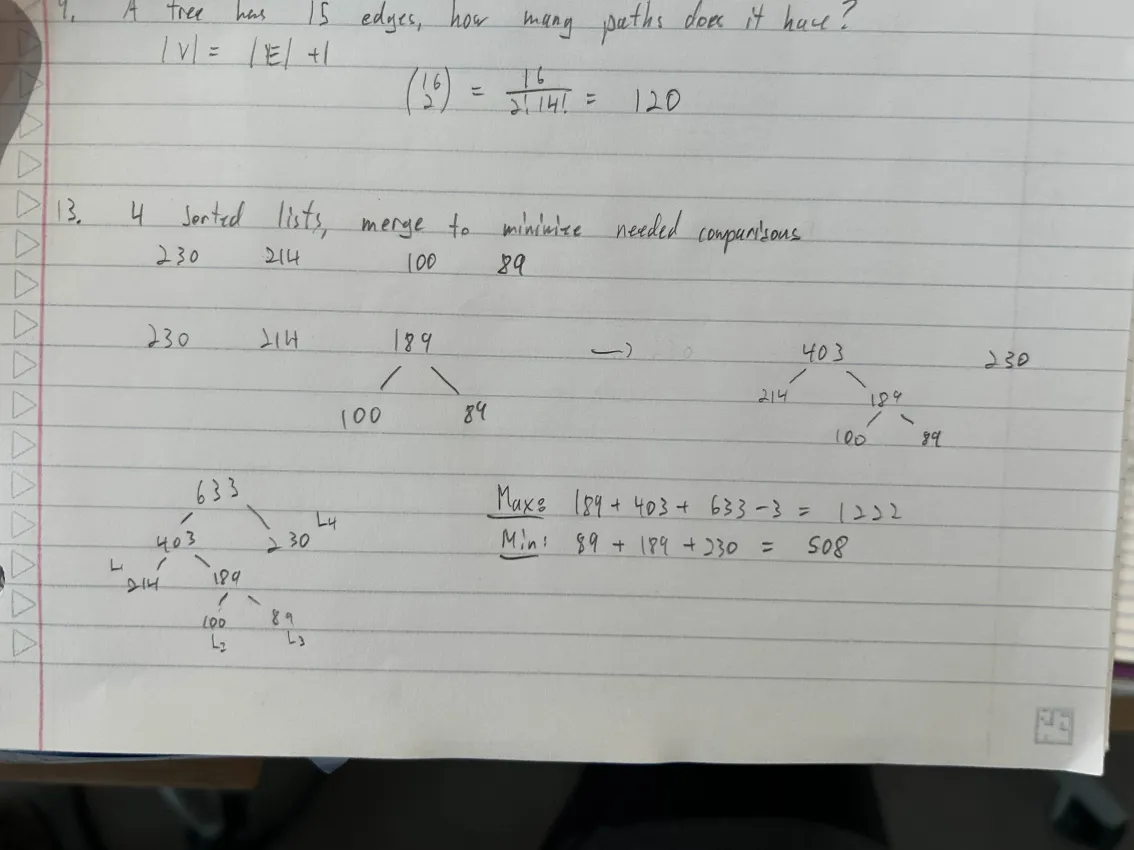 9. A tree has 15 edges, how many paths does it have?
|V| = |E| + 1
(16 2) = 16 / 2! 14! = 120
13. 4 sorted lists, merge to minimize needed comparisons
230 214 100 89
230 214 189 → 403 230
100 89 214 189
100 89
633
403 230 L4
L 214 189
100 89
L2 L3
Max: 189 + 403 + 633 - 3 = 1222
Min: 89 + 189 + 230 = 508